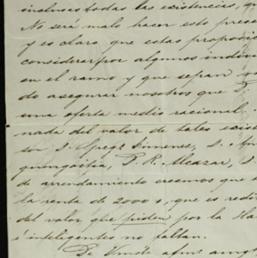 incluso todas las existencias, qu
No será malo hacer este prese
y es claro que estas proposic
considerar por algunos indivi
en el ramo y que sepan
de asegurar nosotros que
una oferta medio racional
nada del valor de tales exist
son J. Lopez Simenez, J.
quingoitia, F. R. Alcazar, J.
de arrendamiento creemos que
la renta de 2000 $, que es redi
del valor que piden por la Ha
é inteligentes no faltan.
De Vmds afmo amigo